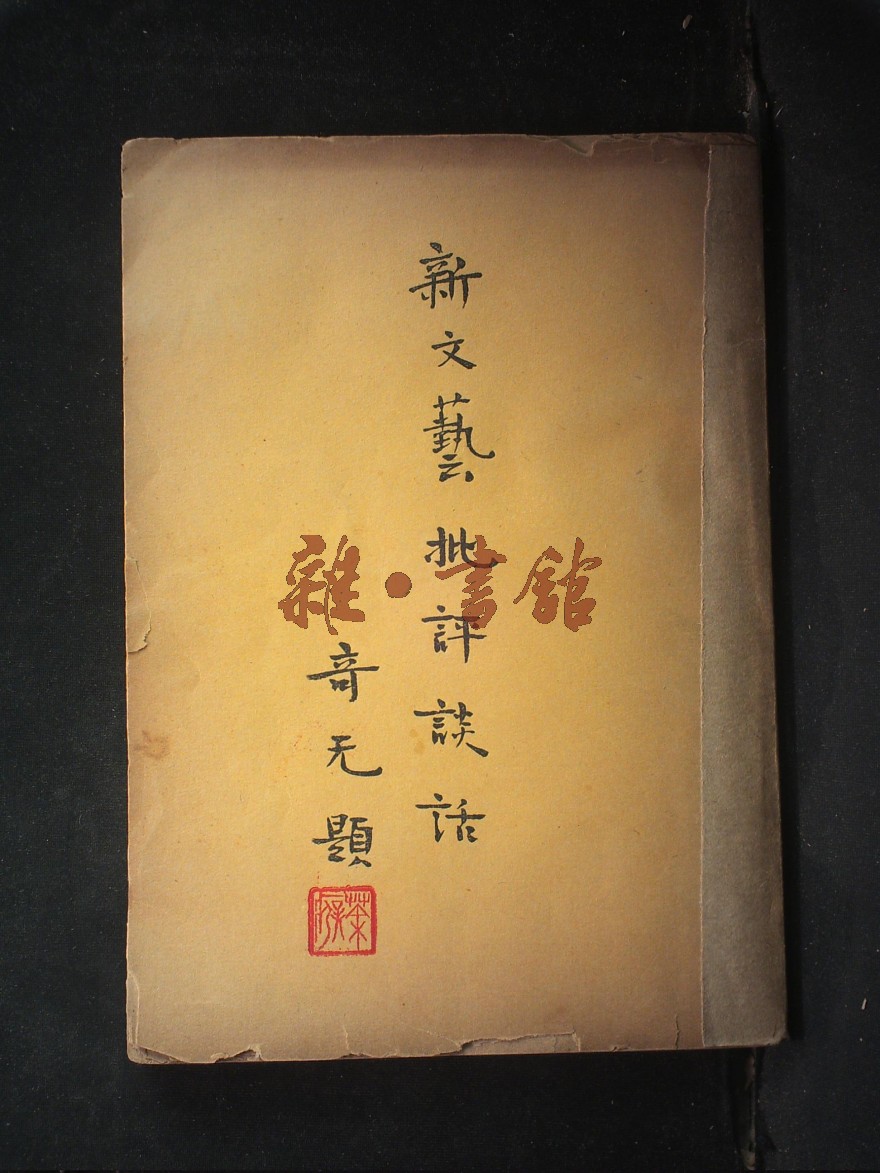 新文藝批評談話
竒无題
雜·書館